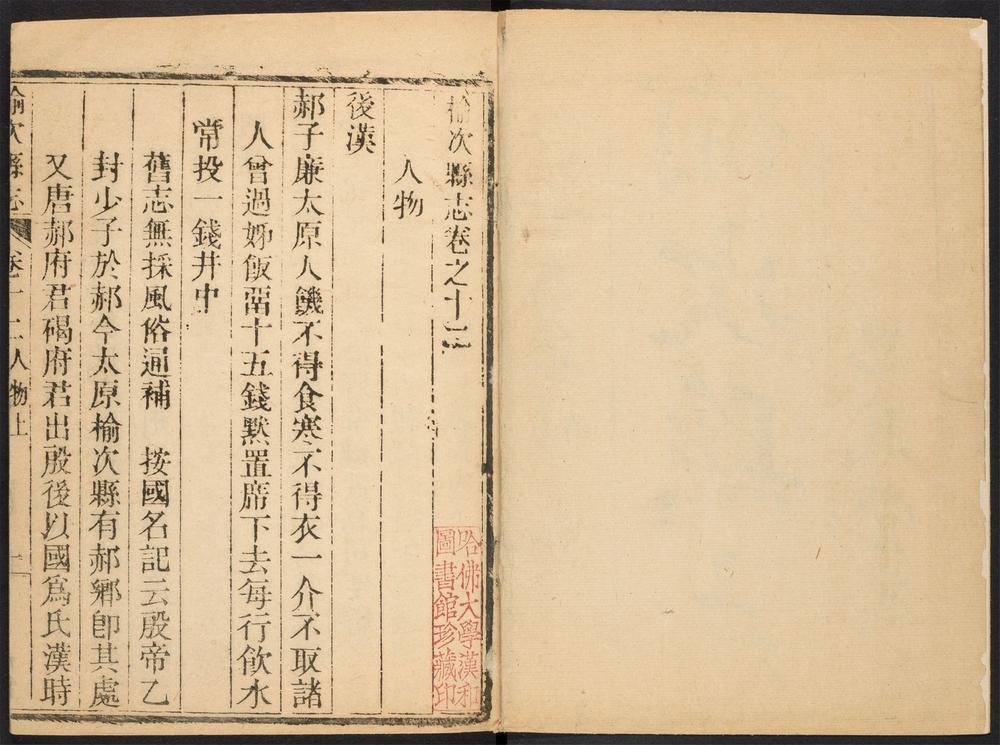 榆次縣志卷之十二
人物
後漢
郝子廉太原人饑不得食寒不得衣一介不取諸
人曾過姊飯畱十五錢默置席下去每行飲水
常投一錢井中
舊志無採風俗通補 按國名記云殷帝乙
封少子於郝今太原榆次縣有郝鄉卽其處
又唐郝府君碣府君出殷後以國爲氏漢時
榆次縣志 卷十二人物上 一
哈佛大學漢和
圖書館珍藏印